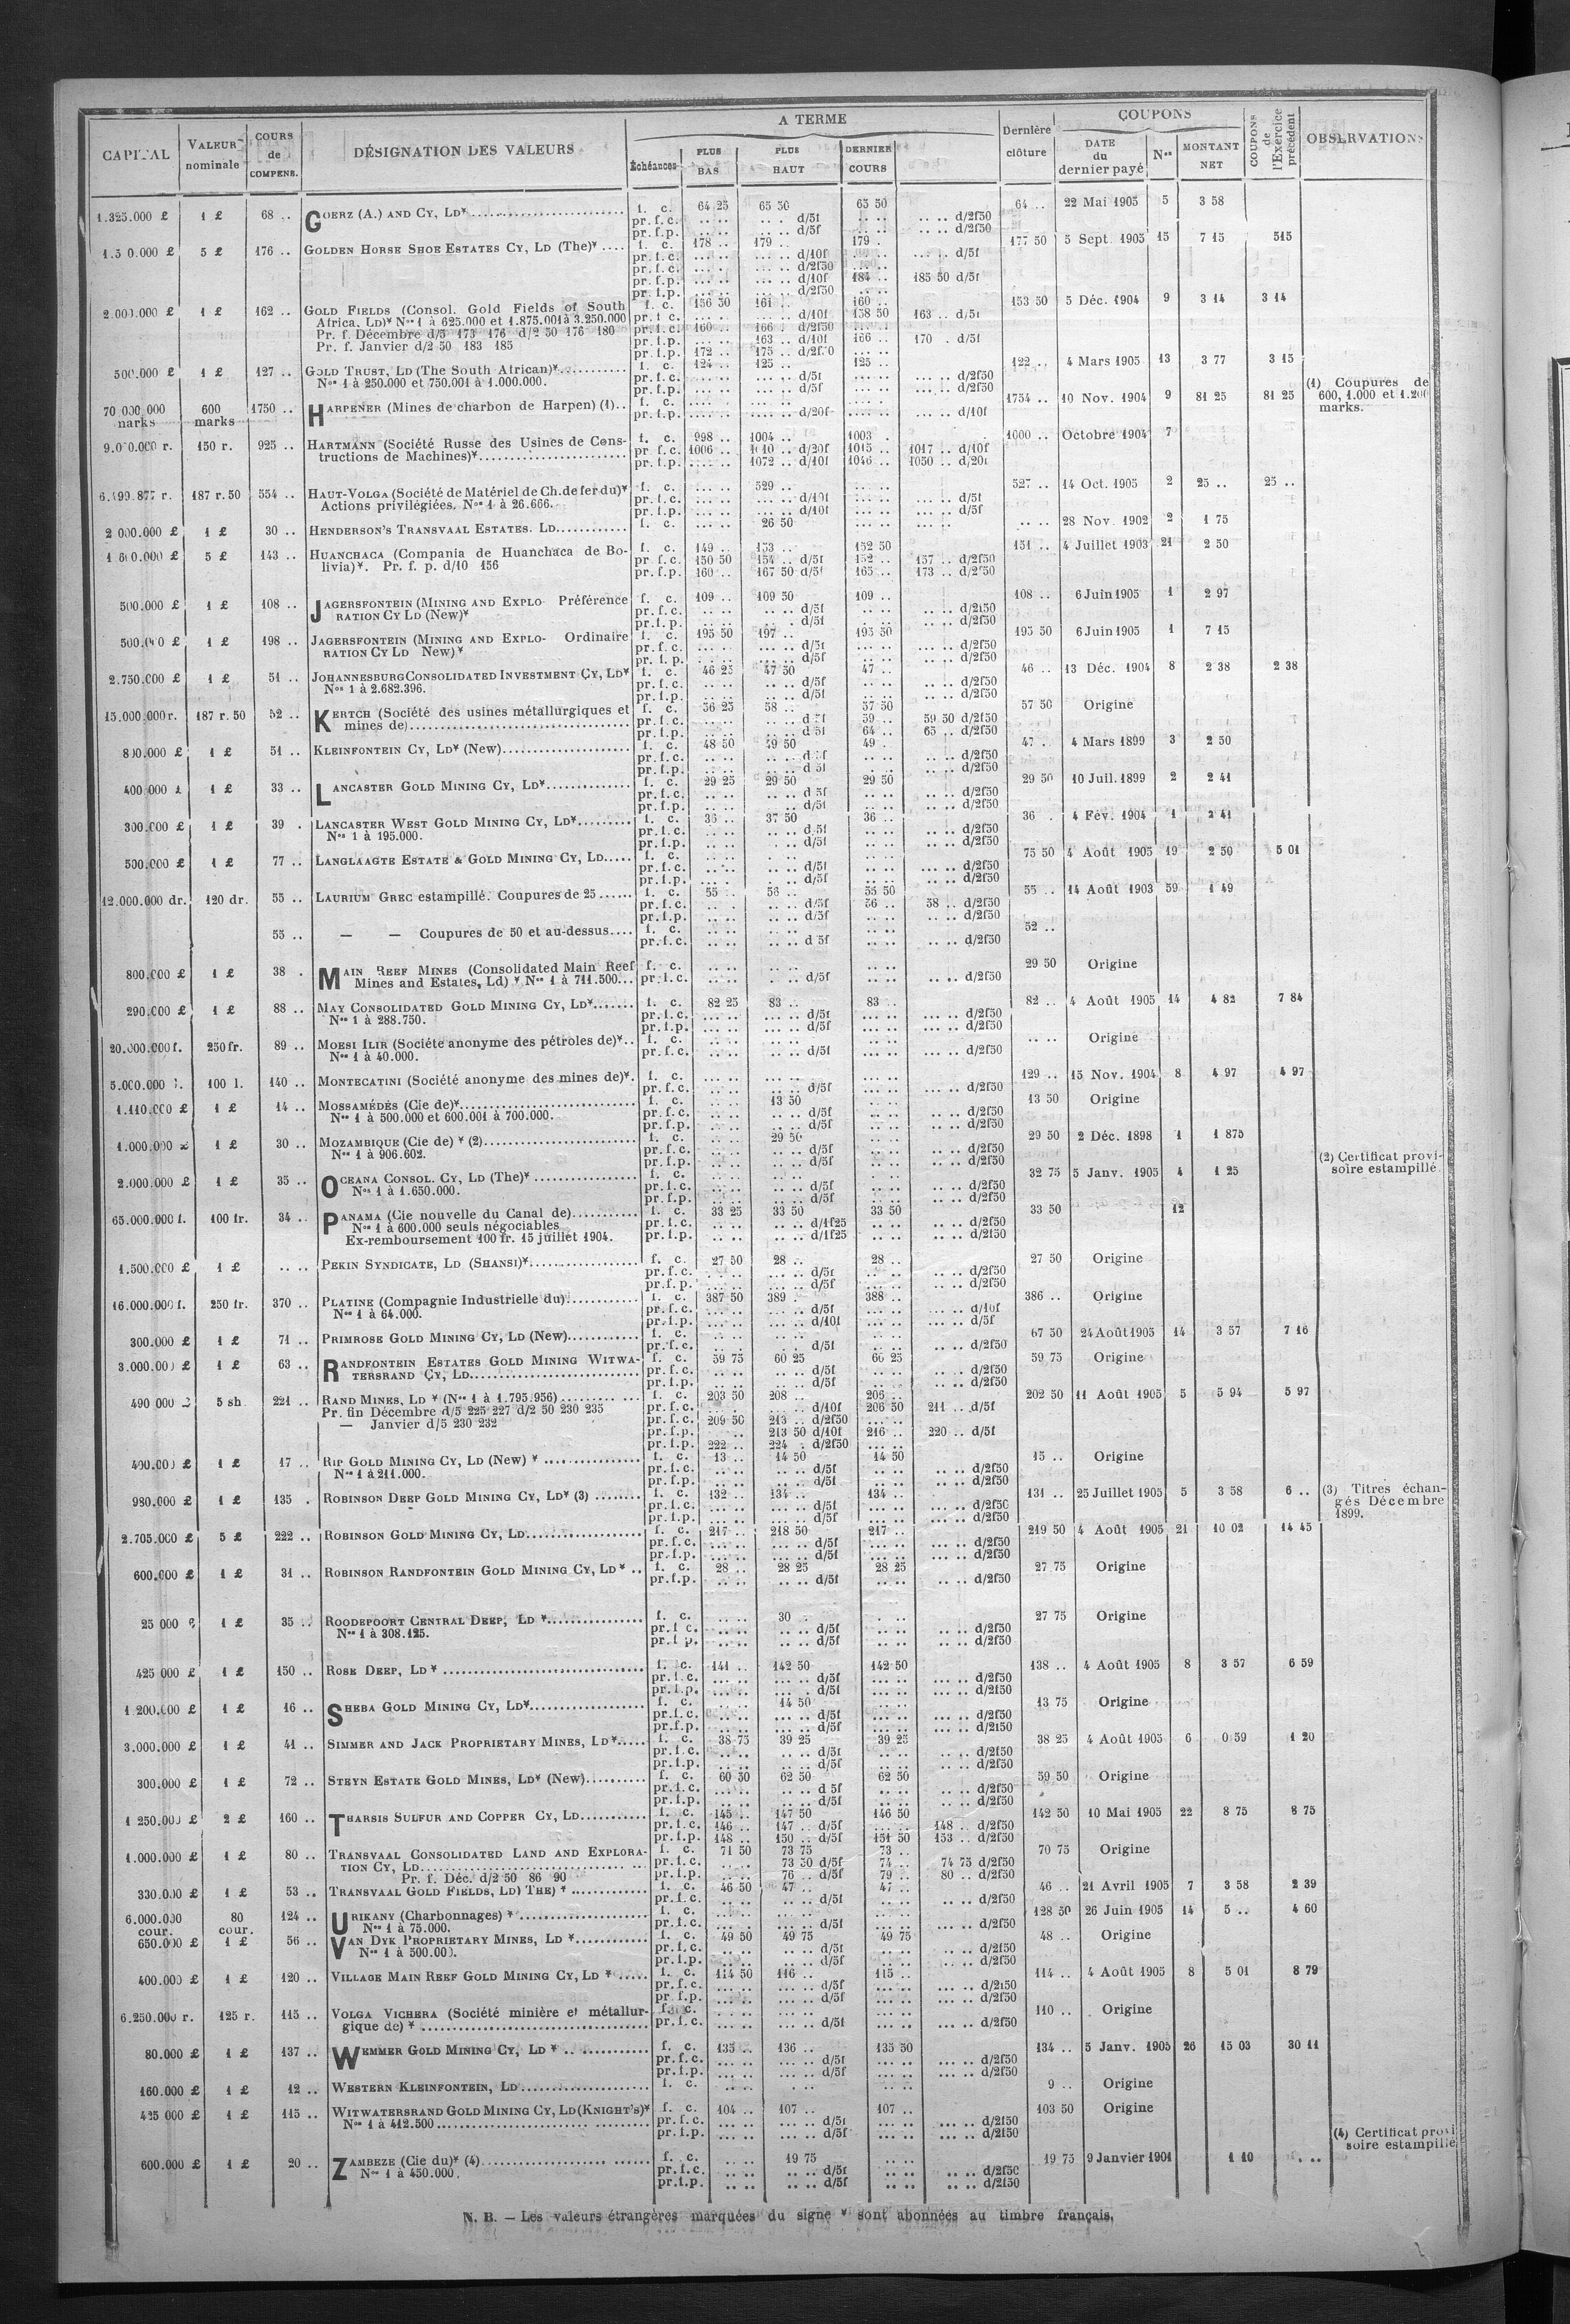 CAPITAL | VALEUR nominale | COURS de COMPENS. | DÉSIGNATION DES VALEURS | A TERME | Échéances | PLUS BAS | PLUS HAUT | DERNIER COURS | Dernière clôture | COUPONS | DATE du dernier payé | Nos | MONTANT NET | COUPONS de l'Exercice précédent | OBSERVATIONS
1.325.000 £ 1 £ 68 .. GOERZ (A.) AND CY, LD* f. c. 64 25 65 50 65 50 64 .. 22 Mai 1905 5 3 58
pr.f.c. d/5f d/2f50
pr.f.p. d/5f d/2f50
5 £ 176 .. GOLDEN HORSE SHOE ESTATES CY, LD (The)* f. c. 178 .. 179 .. 179 . 177 50 5 Sept. 1905 15 7 15 515
pr.f.c. d/10f d/5f
pr.f.c. d/2f50
pr.f.p. d/10f 184 .. 185 50 d/5f
pr.f.p. d/2f50
2.000.000 £ 1 £ 162 .. GOLD FIELDS (Consol. Gold Fields of South f. c. 156 50 161 .. 160 .. 153 50 5 Déc. 1904 9 3 14 3 14
Africa. LD)* Nos 1 à 625.000 et 1.875.001 à 3.250.000 pr.f.c. d/10f 158 50 163 .. d/5f
Pr. f. Décembre d/5 173 176 d/2 50 176 180 pr.f.c. 160 .. 166 . d/2f50
Pr. f. Janvier d/2 50 183 185 pr.f.p. 163 .. d/10f 166 .. 170 . d/5f
pr.f.p. 172 .. 175 .. d/2f50
500.000 £ 1 £ 127 .. GOLD TRUST, LD (The South African)* f. c. 124 .. 125 .. 125 .. 122 .. 4 Mars 1905 13 3 77 3 15
Nos 1 à 250.000 et 750.001 à 1.000.000. pr.f.c. d/5f d/2f50
pr.f.p. d/5f d/2f50
70 000 000 marks 600 marks 1750 .. HARPENER (Mines de charbon de Harpen) (1).. f. c. 1754 .. 10 Nov. 1904 9 81 25 81 25 (1) Coupures de 600, 1.000 et 1.200 marks.
pr.f.p. d/20f d/10f
9.000.000 r. 150 r. 925 .. HARTMANN (Société Russe des Usines de Cons- f. c. 998 .. 1004 .. 1003 . 1000 .. Octobre 1904 7
tructions de Machines)* pr.f.c. 1006 .. 1010 .. d/20f 1015 .. 1017 .. d/10f
pr.f.p. 1072 .. d/10f 1046 .. 1050 .. d/20f
6.499.877 r. 187 r. 50 554 .. HAUT-VOLGA (Société de Matériel de Ch. de fer du)* f. c. 529 .. 527 .. 14 Oct. 1905 2 25 .. 25 ..
Actions privilégiées. Nos 1 à 26.666. pr.f.c. d/10f d/5f
pr.f.p. d/10f d/5f
2 000.000 £ 1 £ 30 .. HENDERSON'S TRANSVAAL ESTATES. LD f. c. 26 50 28 Nov. 1902 2 1 75
1 600.000 £ 5 £ 143 .. HUANCHACA (Compania de Huanchaca de Bo- f. c. 149 .. 153 .. 152 50 151 .. 4 Juillet 1903 21 2 50
livia)*. Pr. f. p. d/10 156 pr.f.c. 150 50 154 .. d/5f 152 .. 157 .. d/2f50
pr.f.p. 160 .. 167 50 d/5f 165 .. 173 .. d/2f50
500.000 £ 1 £ 108 .. JAGERSFONTEIN (MINING AND EXPLO- Préférence f. c. 109 .. 109 50 109 .. 108 .. 6 Juin 1905 1 2 97
RATION CY LD (New)* pr.f.c. d/5f d/2f50
pr.f.p. d/5f d/2f50
500.000 £ 1 £ 198 .. JAGERSFONTEIN (MINING AND EXPLO- Ordinaire f. c. 195 50 197 .. 195 50 195 50 6 Juin 1905 1 7 15
RATION CY LD New)* pr.f.c. d/5f d/2f50
pr.f.p. d/5f d/2f50
2.750.000 £ 1 £ 51 .. JOHANNESBURG CONSOLIDATED INVESTMENT CY, LD* f. c. 46 25 47 50 47 .. 46 .. 13 Déc. 1904 8 2 38 2 38
Nos 1 à 2.682.396. pr.f.c. d/5f d/2f50
pr.f.p. d/5f d/2f50
15.000.000 r. 187 r. 50 52 .. KERTCH (Société des usines métallurgiques et f. c. 56 25 58 .. 57 50 57 50 Origine
mines de) pr.f.c. d 5f 59 .. 59 50 d/2f50
pr.f.p. d 5f 64 .. 65 .. d/2f50
800.000 £ 1 £ 51 .. KLEINFONTEIN CY, LD* (New) f. c. 48 50 49 50 49 . 47 .. 4 Mars 1899 3 2 50
pr.f.c. d 5f d/2f50
pr.f.p. d 5f d/2f50
400.000 £ 1 £ 33 .. LANCASTER GOLD MINING CY, LD* f. c. 29 25 29 50 29 50 29 50 10 Juil. 1899 2 2 41
pr.f.c. d 5f d/2f50
pr.f.p. d/5f d/2f50
300.000 £ 1 £ 39 . LANCASTER WEST GOLD MINING CY, LD* f. c. 36 .. 37 50 36 .. 36 . 4 Fév. 1904 1 2 41
Nos 1 à 195.000. pr.f.c. d 5f d/2f50
pr.f.p. d/5f d/2f50
500.000 £ 1 £ 77 .. LANGLAAGTE ESTATE & GOLD MINING CY, LD f. c. 75 50 4 Août 1905 19 2 50 5 01
pr.f.c. d/5f d/2f50
pr.f.p. d/5f d/2f50
12.000.000 dr. 120 dr. 55 .. LAURIUM GREC estampillé. Coupures de 25 f. c. 55 .. 56 .. 55 50 55 .. 14 Août 1903 59 1 49
pr.f.c. d/5f 56 .. 58 .. d/2f50
pr.f.p. d/5f d/2f50
55 .. — — Coupures de 50 et au-dessus f. c. 52 ..
pr.f.c. d 5f d/2f50
800.000 £ 1 £ 38 . MAIN REEF MINES (Consolidated Main Reef f. c. 29 50 Origine
Mines and Estates, Ld) * Nos 1 à 711.500 pr.f.c. d/5f d/2f50
290.000 £ 1 £ 88 .. MAY CONSOLIDATED GOLD MINING CY, LD* f. c. 82 25 83 .. 83 .. 82 .. 4 Août 1905 14 4 82 7 84
Nos 1 à 288.750. pr.f.c. d/5f d/2f50
pr.f.p. d/5f d/2f50
20.000.000 f. 250 fr. 89 .. MOESI ILIR (Société anonyme des pétroles de)* f. c. Origine
Nos 1 à 40.000. pr.f.c. d/5f d/2f50
5.000.000 l. 100 l. 140 .. MONTECATINI (Société anonyme des mines de)*. f. c. 129 .. 15 Nov. 1904 8 4 97 4 97
pr.f.c. d/5f d/2f50
1.110.000 £ 1 £ 14 .. MOSSAMÉDÈS (Cie de)* f. c. 13 50 13 50 Origine
Nos 1 à 500.000 et 600.001 à 700.000. pr.f.c. d/5f d/2f50
pr.f.p. d/5f d/2f50
1.000.000 £ 1 £ 30 .. MOZAMBIQUE (Cie de) * (2) f. c. 29 50 29 50 2 Déc. 1898 1 1 875 (2) Certificat provi-soire estampillé.
Nos 1 à 906.602. pr.f.c. d/5f d/2f50
pr.f.p. d/5f d/2f50
2.000.000 £ 1 £ 35 .. OCEANA CONSOL. CY, LD (The)* f. c. 32 75 5 Janv. 1905 4 1 25
Nos 1 à 1.650.000. pr.f.c. d/5f d/2f50
pr.f.p. d/5f d/2f50
65.000.000 f. 100 fr. 34 .. PANAMA (Cie nouvelle du Canal de) f. c. 33 25 33 50 33 50 33 50 12
Nos 1 à 600.000 seuls négociables pr.f.c. d/1f25 d/2f50
Ex-remboursement 100 fr. 15 juillet 1904. pr.f.p. d/1f25 d/2f50
1.500.000 £ 1 £ PEKIN SYNDICATE, LD (SHANSI)* f. c. 27 50 28 .. 28 .. 27 50 Origine
pr.f.c. d/5f d/2f50
pr.f.p. d/5f d/2f50
16.000.000 f. 250 fr. 370 .. PLATINE (Compagnie Industrielle du) f. c. 387 50 389 . 388 .. 386 .. Origine
Nos 1 à 64.000. pr.f.c. d/5f d/10f
pr.f.p. d/10f d/5f
300.000 £ 1 £ 71 .. PRIMROSE GOLD MINING CY, LD (New) f. c. 67 50 24 Août 1905 14 3 57 7 16
pr.f.c. d/5f d/2f50
3.000.000 £ 1 £ 63 .. RANDFONTEIN ESTATES GOLD MINING WITWA- f. c. 59 75 60 25 60 25 59 75 Origine
TERSRAND CY, LD pr.f.c. d/5f d/2f50
pr.f.p. d/5f d/2f50
490 000 £ 5 sh 221 .. RAND MINES, LD * (Nos 1 à 1.795.956) f. c. 203 50 208 .. 206 .. 202 50 11 Août 1905 5 5 94 5 97
Pr. fin Décembre d/5 225 227 d/2 50 230 235 pr.f.c. d/10f 206 50 211 .. d/5f
— Janvier d/5 230 232 pr.f.c. 209 50 213 .. d/2f50
pr.f.p. 213 50 d/10f 216 .. 220 .. d/5f
pr.f.p. 222 .. 224 . d/2f50
400.000 £ 1 £ 17 .. RIP GOLD MINING CY, LD (New) * f. c. 13 .. 14 50 14 50 15 .. Origine
Nos 1 à 211.000. pr.f.c. d/5f d/2f50
pr.f.p. d/5f d/2f50
980.000 £ 1 £ 135 . ROBINSON DEEP GOLD MINING CY, LD* (3) f. c. 132 .. 134 .. 134 .. 131 .. 25 Juillet 1905 5 3 58 6 .. (3) Titres échan-gés Décembre 1899.
pr.f.c. d/5f d/2f50
pr.f.p. d/5f d/2f50
2.705.000 £ 5 £ 222 .. ROBINSON GOLD MINING CY, LD f. c. 217 .. 218 50 217 .. 219 50 4 Août 1905 21 10 02 14 45
pr.f.c. d/5f d/2f50
pr.f.p. d/5f d/2f50
600.000 £ 1 £ 31 .. ROBINSON RANDFONTEIN GOLD MINING CY, LD * .. f. c. 28 .. 28 25 28 25 27 75 Origine
pr.f.p. d/5f d/2f50
25 000 1 £ 35 .. ROODEPOORT CENTRAL DEEP, LD * f. c. 30 . 27 75 Origine
Nos 1 à 308.125. pr.f.c. d/5f d/2f50
pr.f.p. d/5f d/2f50
425 000 £ 1 £ 150 .. ROSE DEEP, LD * f. c. 141 .. 142 50 142 50 138 .. 4 Août 1905 8 3 57 6 59
pr.f.c. d/5f d/2f50
pr.f.p. d/5f d/2f50
1 200.000 £ 1 £ 16 .. SHEBA GOLD MINING CY, LD* f. c. 14 50 13 75 Origine
pr.f.c. d/5f d/2f50
pr.f.p. d/5f d/2f50
3.000.000 £ 1 £ 41 .. SIMMER AND JACK PROPRIETARY MINES, LD* f. c. 38 75 39 25 39 25 38 25 4 Août 1905 6 0 59 1 20
pr.f.c. d/5f d/2f50
pr.f.p. d/5f d/2f50
300.000 £ 1 £ 72 .. STEYN ESTATE GOLD MINES, LD* (New) f. c. 60 50 62 50 62 50 59 50 Origine
pr.f.c. d 5f d/2f50
pr.f.p. d/5f d/2f50
1 250.000 £ 2 £ 160 .. THARSIS SULFUR AND COPPER CY, LD f. c. 145 .. 147 50 146 50 142 50 10 Mai 1905 22 8 75 8 75
pr.f.c. 146 .. 147 .. d/5f 148 .. d/2f50
pr.f.p. 148 .. 150 .. d/5f 151 50 153 .. d/2f50
1.000.000 £ 1 £ 80 .. TRANSVAAL CONSOLIDATED LAND AND EXPLORA- f. c. 71 50 73 75 73 .. 70 75 Origine
TION CY, LD pr.f.c. 73 50 d/5f 74 .. 74 75 d/2f50
Pr. f. Déc. d/2 50 86 90 pr.f.p. 76 .. d/5f 79 .. 80 .. d/2f50
330.000 £ 1 £ 53 .. TRANSVAAL GOLD FIELDS, LD) THE) * f. c. 46 50 47 .. 47 .. 46 .. 21 Avril 1905 7 3 58 2 39
pr.f.c. d/5f d/2f50
6.000.000 cour. 80 cour. 124 .. URIKANY (Charbonnages) * f. c. 128 50 26 Juin 1905 14 5 .. 4 60
Nos 1 à 75.000. pr.f.c. d/5f d/2f50
650.000 £ 1 £ 56 .. VAN DYK PROPRIETARY MINES, LD * f. c. 49 50 49 75 49 75 48 .. Origine
Nos 1 à 500.000. pr.f.c. d/5f d/2f50
pr.f.p. d/5f d/2f50
400.000 £ 1 £ 120 .. VILLAGE MAIN REEF GOLD MINING CY, LD * f. c. 114 50 116 .. 115 .. 114 .. 4 Août 1905 8 5 01 8 79
pr.f.c. d/5f d/2f50
pr.f.p. d/5f d/2f50
6.250.000 r. 125 r. 115 .. VOLGA VICHERA (Société minière et métallur- f. c. 110 .. Origine
gique de) * pr.f.c. d/5f d/2f50
80.000 £ 1 £ 137 .. WEMMER GOLD MINING CY, LD * f. c. 135 .. 136 .. 135 50 134 .. 5 Janv. 1905 26 15 03 30 11
pr.f.c. d/5f d/2f50
pr.f.p. d/5f d/2f50
160.000 £ 1 £ 12 .. WESTERN KLEINFONTEIN, LD f. c. 9 .. Origine
425 000 £ 1 £ 115 .. WITWATERSRAND GOLD MINING CY, LD (KNIGHT'S)* f. c. 104 .. 107 .. 107 .. 103 50 Origine
Nos 1 à 412.500 pr.f.c. d/5f d/2f50
pr.f.p. d/5f d/2f50
600.000 £ 1 £ 20 .. ZAMBEZE (Cie du)* (4) f. c. 19 75 19 75 9 Janvier 1901 1 10 (4) Certificat provi soire estampillé
Nos 1 à 450.000. pr.f.c. d/5f d/2f50
pr.f.p. d/5f d/2f50
N. B. — Les valeurs étrangères marquées du signe * sont abonnées au timbre français.